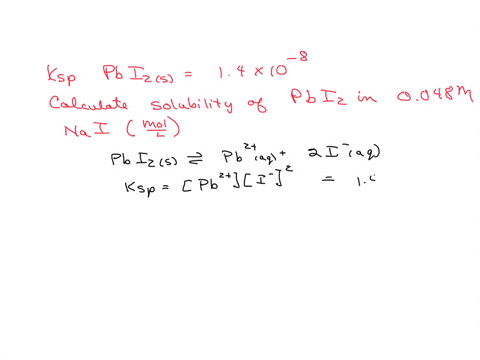 Ksp PbI₂(s) = 1.4 × 10⁻⁸
Calculate solubility of PbI₂ in 0.048M
NaI (mol/L)
PbI₂(s) ⇌ Pb²⁺(aq) + 2I⁻(aq)
Ksp = [Pb²⁺][I⁻]² = 1.